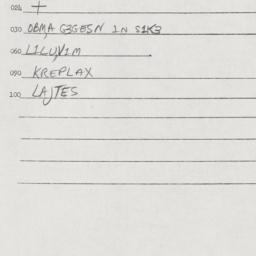 024 +
030 OBMA G3GESN IN SIK3
060 LILUVIM
090 KREPLAX
100 LAJTES